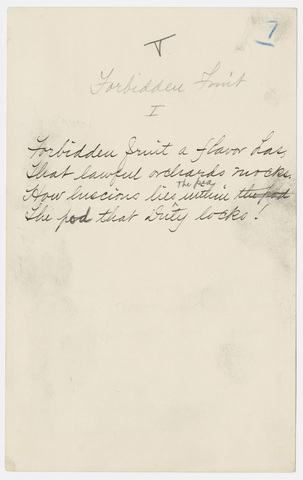 7
Forbidden Fruit
I
Forbidden fruit a flavor has
That lawful orchards mocks.
How luscious lies The pea within the pod
The pod that Duty locks!